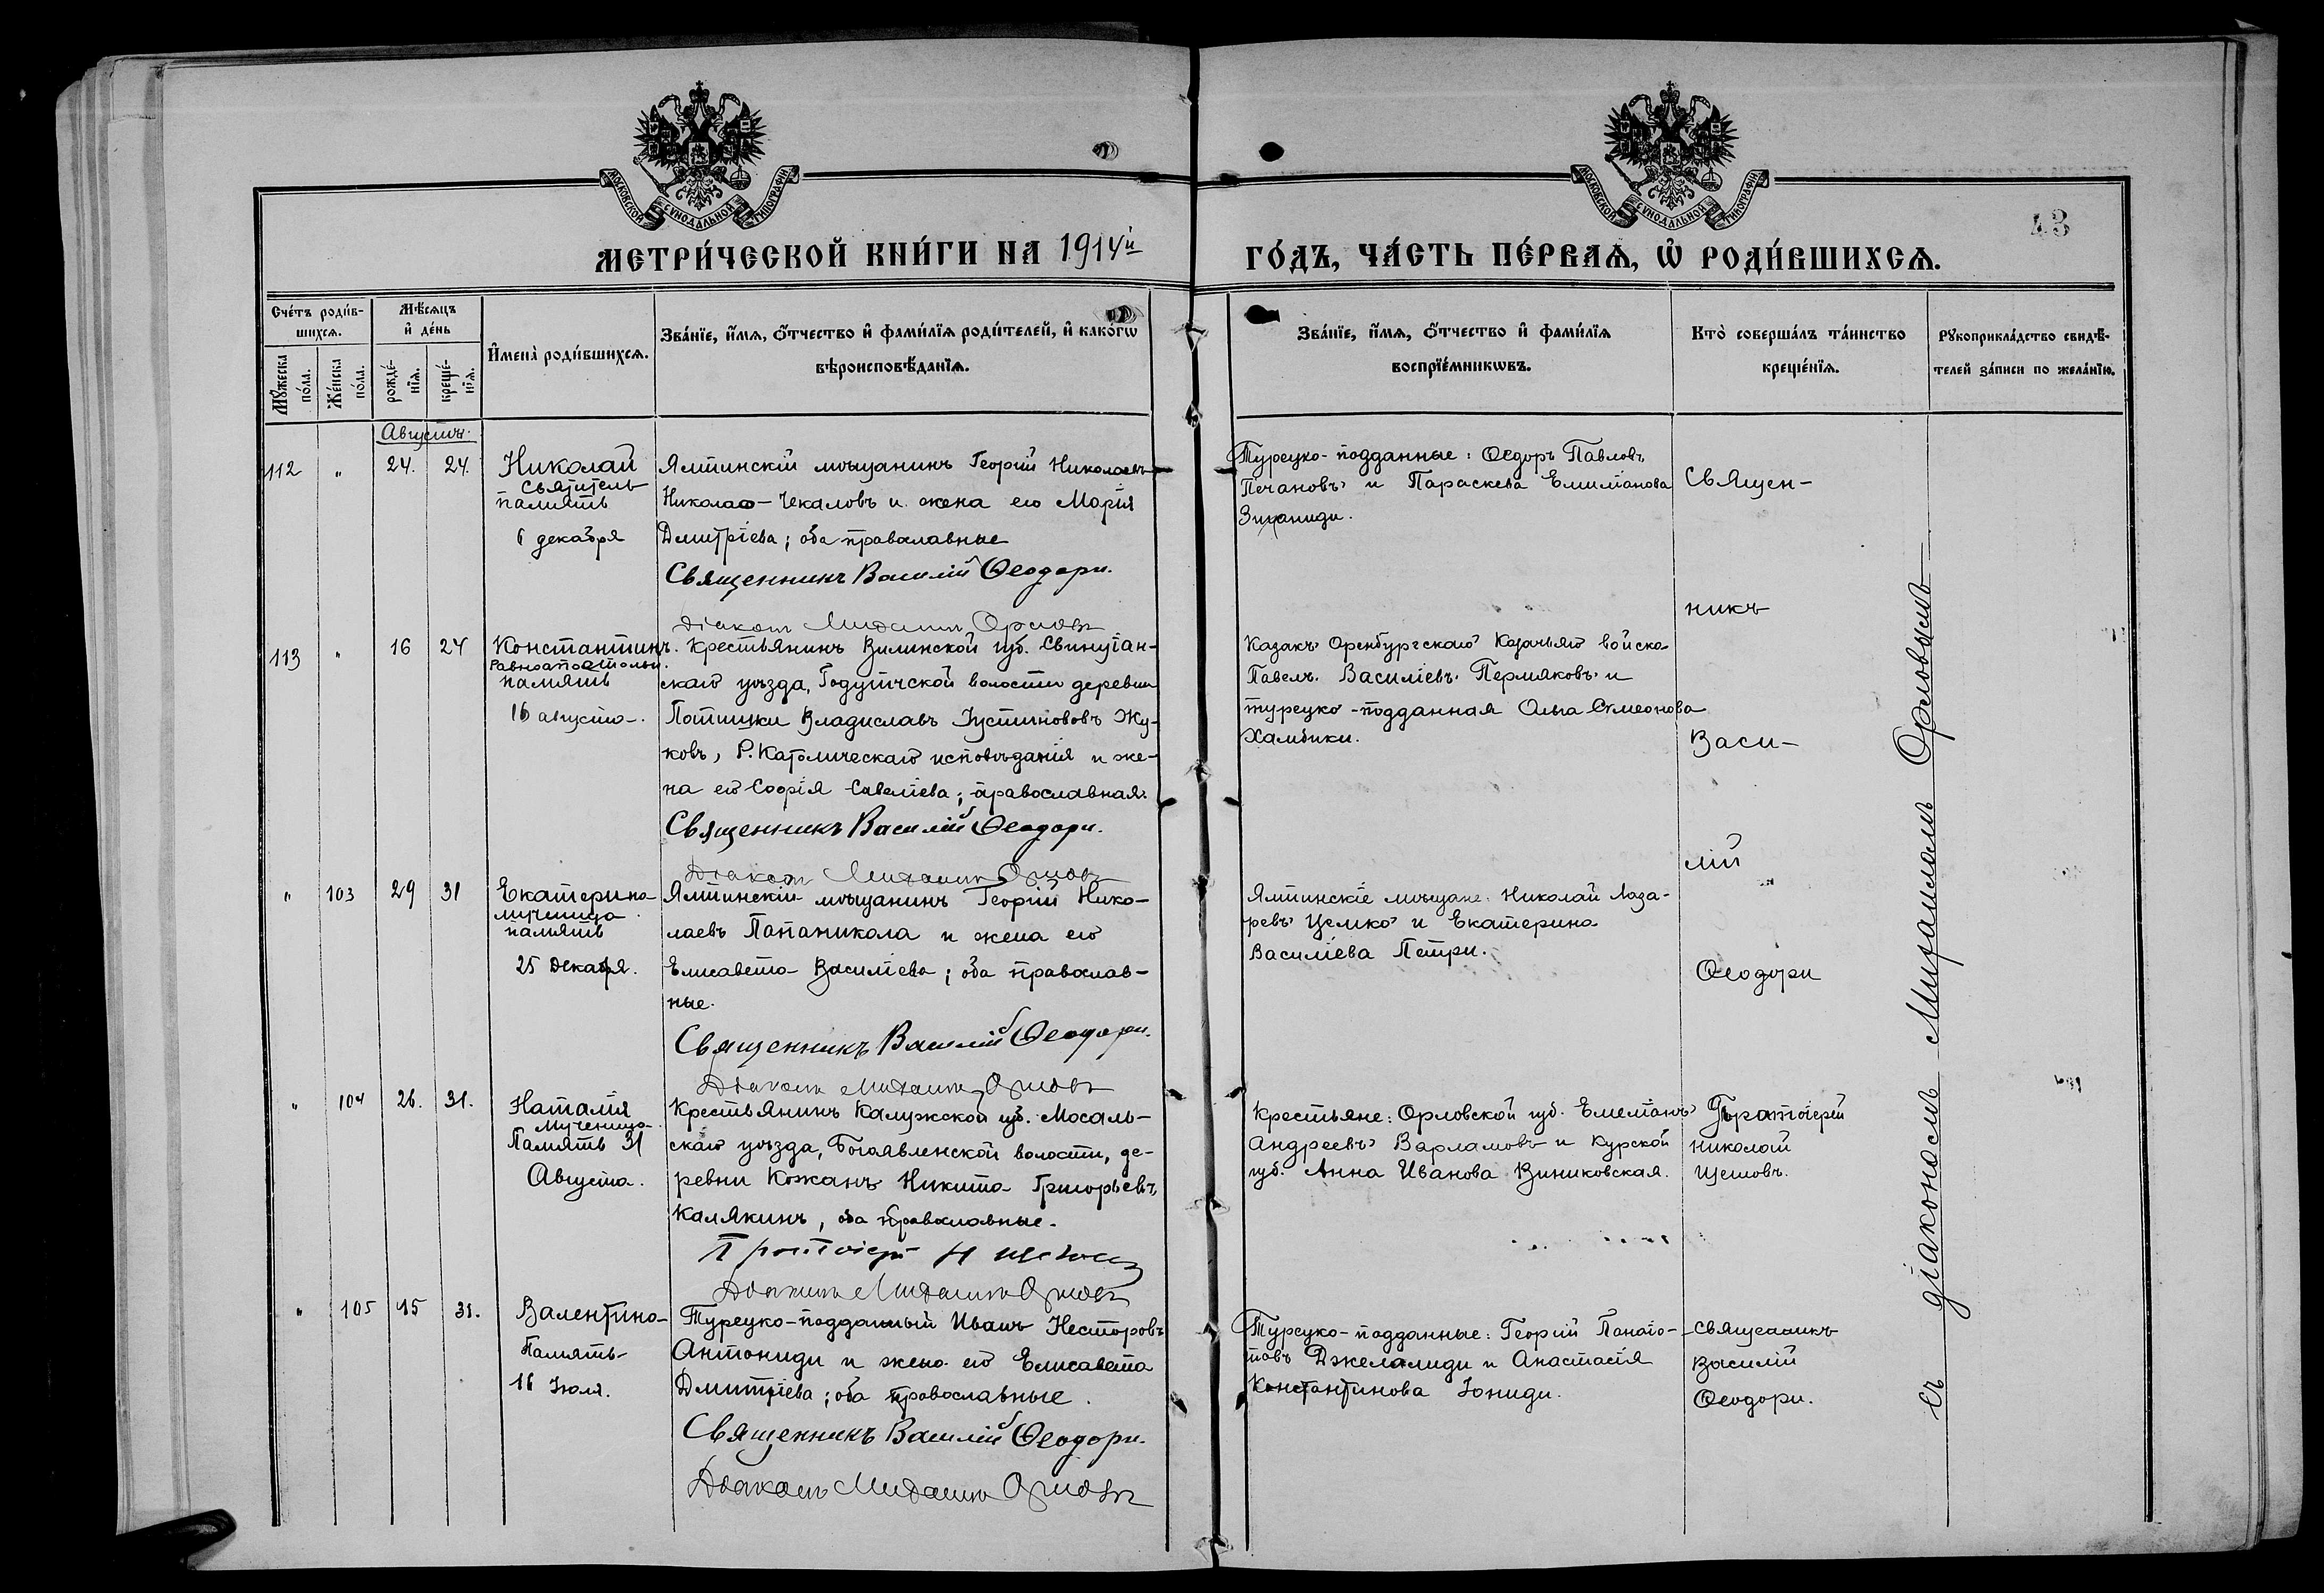 МОСКОВСКОЙ СѴНОДАЛЬНОЙ ТИПОГРАФІИ
МОСКОВСКОЙ СѴНОДАЛЬНОЙ ТИПОГРАФІИ
43
МЕТРИ́ЧЕСКОЙ КНИ́ГИ НА 1914й
ГО́ДЪ, ЧА́СТЬ ПЕ́РВАѦ, Ѽ РОДИ́ВШИХСѦ.
Сче́тъ роди́в-
шихсѧ.
Мꙋ́жеска по́ла.
Же́нска по́ла.
Мѣ́сѧцъ
и҆ де́нь
рожде́-нїѧ.
креще́-нїѧ.
И҆мена̀ роди́вшихсѧ.
Зва́нїе, и҆́мѧ, ѻ҆́тчество и҆ фами́лїѧ роди́телей, и҆ како́гѡ
вѣроисповѣ́данїѧ.
Зва́нїе, и҆́мѧ, ѻ҆́тчество и҆ фами́лїѧ
воспрїе́мникѡвъ.
Кто̀ соверша́лъ та́инство
креще́нїѧ.
Рꙋкоприкла́дство свидѣ́-
телей за́писи по жела́нїю.
Августъ.
112 " 24. 24.
Николай
Святитель
память
6 декабря
Ялтинскій мѣщанинъ Георгій Николаевъ
Николао-Чекаловъ и жена его Марія
Дмитріева; оба православные
Священникъ Василій Ѳеодори.
Діаконъ Михаилъ Орловъ
Турецко-подданные: Ѳедоръ Павловъ
Печановъ и Параскева Емиліанова
Зиханиди.
Священ-
никъ
113 " 16 24
Константинъ.
Равноапостольн.
память
16 августа.
Крестьянинъ Виленской губ. Свинцян-
скаго уѣзда, Годутичской волости деревни
Потишки Владиславъ Іустиновъ Жу-
ковъ, Р. Католическаго исповѣданія и же-
на его Софія Савеліева; православная.
Священникъ Василій Ѳеодори.
Діаконъ Михаилъ Орловъ
Казакъ Оренбургскаго Казачьяго войска
Павелъ Василіевъ Пермяковъ и
турецко-подданная Ольга Симеонова
Хамбики.
Васи-
лій
" 103 29 31
Екатерина
мученица
память
25 Декабря.
Ялтинскій мѣщанинъ Георгій Нико-
лаевъ Папаникола и жена его
Елисавета Василіева; оба православ-
ные.
Священникъ Василій Ѳеодори.
Діаконъ Михаилъ Орловъ
Ялтинскіе мѣщане: Николай Лаза-
ревъ Цемко и Екатерина
Василіева Петри.
Ѳеодори
" 104 26. 31.
Наталія
Мученица.
Память 31
Августа.
Крестьянинъ Калужской губ. Мосаль-
скаго уѣзда, Богоявленской волости, де-
ревни Кожанъ Никита Григорьевъ
Калякинъ, оба православные.
Протоіерей Н Щегловъ
Діаконъ Михаилъ Орловъ
Крестьяне: Орловской губ. Емеліанъ
Андреевъ Варламовъ и Курской
губ. Анна Иванова Виниковская.
Протоіерей
Николай
Щегловъ.
" 105 15 31.
Валентина
Память
16 Іюля.
Турецко-подданный Иванъ Несторовъ
Антониди и жена его Елисавета
Дмитріева; оба православные.
Священникъ Василій Ѳеодори.
Діаконъ Михаилъ Орловъ
Турецко-подданные: Георгій Панаіо-
товъ Джелалиди и Анастасія
Константинова Іониди.
Священникъ
Василій
Ѳеодори.
съ діакономъ Михаиломъ Орловымъ